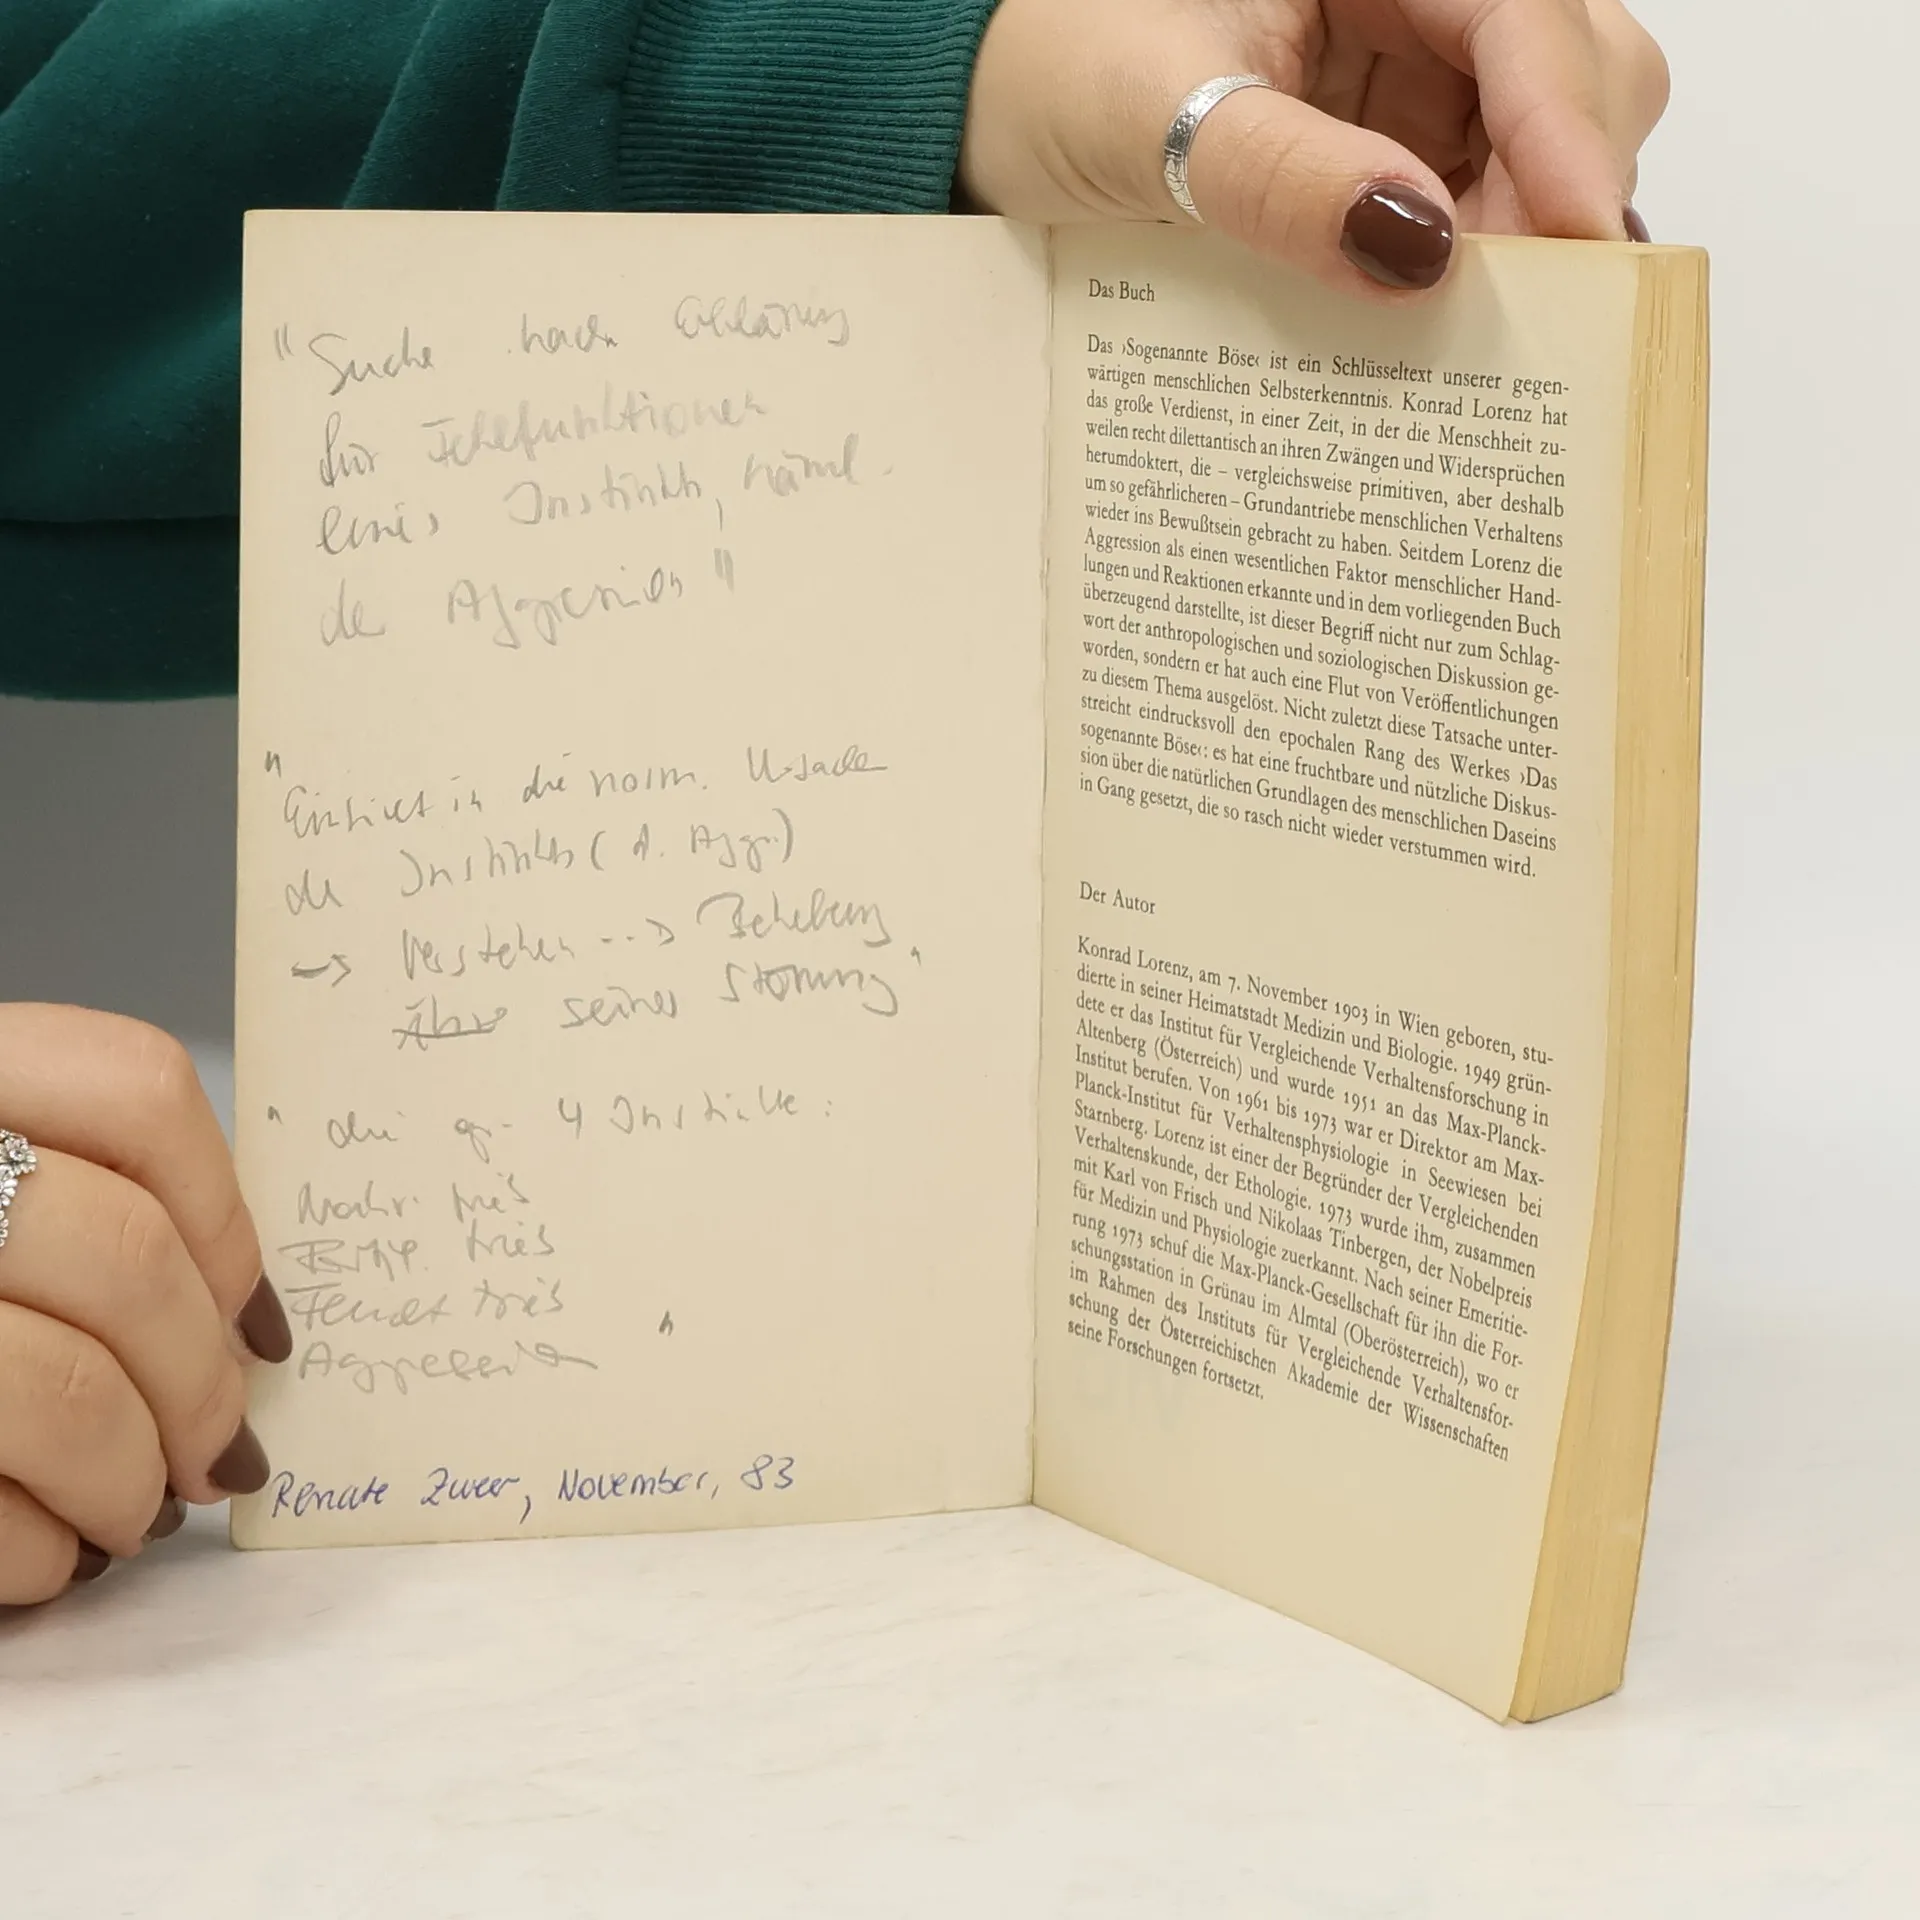 "Suche nach Erklärung
für Fehlfunktionen
eines Instinkts, näml.
der Aggression"
"Einsicht in die norm. Ursache
des Instinkts (d. Aggr.)
→ Verstehen --> Behebung
seiner Störung"
"die gr. 4 Instinkte:
Nahr. trieb
Fortpf. trieb
Flucht trieb
Aggression "
Renate Zweer, November, 83
Das Buch
Das ›Sogenannte Böse‹ ist ein Schlüsseltext unserer gegen-
wärtigen menschlichen Selbsterkenntnis. Konrad Lorenz hat
das große Verdienst, in einer Zeit, in der die Menschheit zu-
weilen recht dilettantisch an ihren Zwängen und Widersprüchen
herumdoktert, die – vergleichsweise primitiven, aber deshalb
um so gefährlicheren – Grundantriebe menschlichen Verhaltens
wieder ins Bewußtsein gebracht zu haben. Seitdem Lorenz die
Aggression als einen wesentlichen Faktor menschlicher Hand-
lungen und Reaktionen erkannte und in dem vorliegenden Buch
überzeugend darstellte, ist dieser Begriff nicht nur zum Schlag-
wort der anthropologischen und soziologischen Diskussion ge-
worden, sondern er hat auch eine Flut von Veröffentlichungen
zu diesem Thema ausgelöst. Nicht zuletzt diese Tatsache unter-
streicht eindrucksvoll den epochalen Rang des Werkes ›Das
sogenannte Böse‹: es hat eine fruchtbare und nützliche Diskus-
sion über die natürlichen Grundlagen des menschlichen Daseins
in Gang gesetzt, die so rasch nicht wieder verstummen wird.
Der Autor
Konrad Lorenz, am 7. November 1903 in Wien geboren, stu-
dierte in seiner Heimatstadt Medizin und Biologie. 1949 grün-
dete er das Institut für Vergleichende Verhaltensforschung in
Altenberg (Österreich) und wurde 1951 an das Max-Planck-
Institut berufen. Von 1961 bis 1973 war er Direktor am Max-
Planck-Institut für Verhaltensphysiologie in Seewiesen bei
Starnberg. Lorenz ist einer der Begründer der Vergleichenden
Verhaltenskunde, der Ethologie. 1973 wurde ihm, zusammen
mit Karl von Frisch und Nikolaas Tinbergen, der Nobelpreis
für Medizin und Physiologie zuerkannt. Nach seiner Emeritie-
rung 1973 schuf die Max-Planck-Gesellschaft für ihn die For-
schungsstation in Grünau im Almtal (Oberösterreich), wo er
im Rahmen des Instituts für Vergleichende Verhaltensfor-
schung der Österreichischen Akademie der Wissenschaften
seine Forschungen fortsetzt.